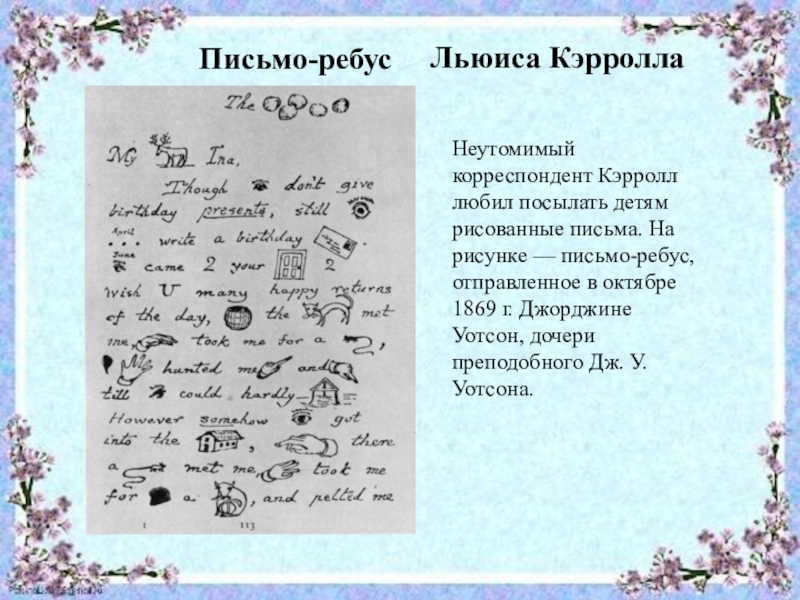 Письмо-ребус
Льюиса Кэрролла
The
My Ina,
Though don't give
birthday presents, still
April
... write a birthday .
June
came 2 your 2
wish U many happy returns
of the day, the met
me, took me for a ,
hunted me and
till could hardly
However somehow got
into the , there
a met me, took me
for a , and pelted me
1 113
Неутомимый
корреспондент Кэрролл
любил посылать детям
рисованные письма. На
рисунке — письмо-ребус,
отправленное в октябре
1869 г. Джорджине
Уотсон, дочери
преподобного Дж. У.
Уотсона.